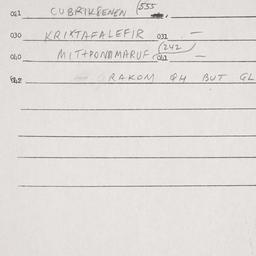 041 CUBRIKSENEN (555
030 KRIKTAFALEFIR 031 —
040 MITTPONDMARUF (242 041 —
042 RAKOM GH BUT GL